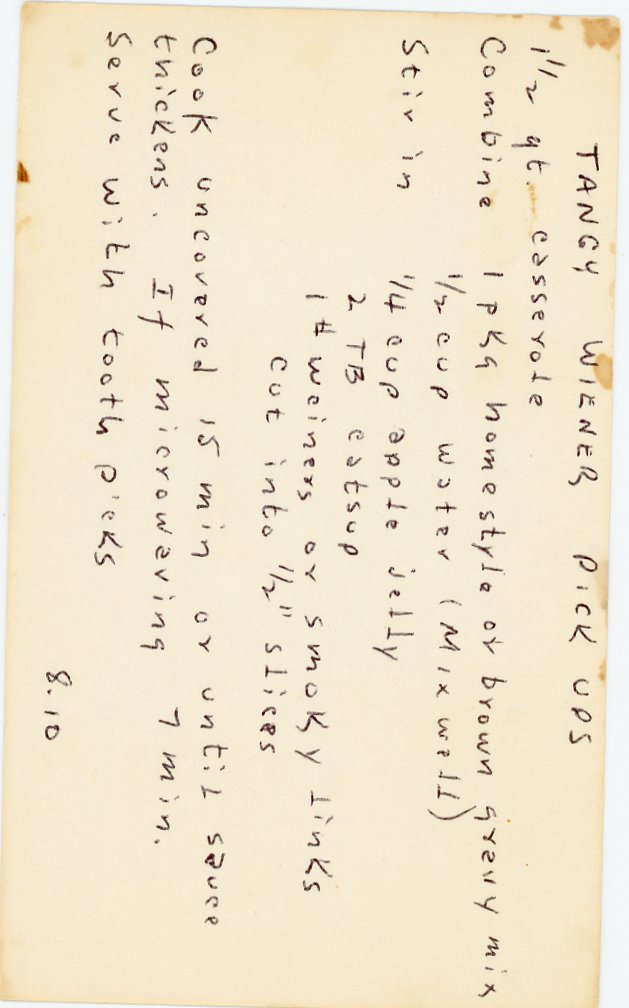 TANGY WIENER PICK UPS
1 1/2 qt. casserole
Combine 1 pkg homestyle or brown gravy mix
1/2 cup water (Mix well)
Stir in 1/4 cup apple jelly
2 TB catsup
1 # weiners or smoky links
cut into 1/2" slices
Cook uncovered 15 min or until sauce
thickens. If microwaving 7 min.
Serve with tooth picks
8.10